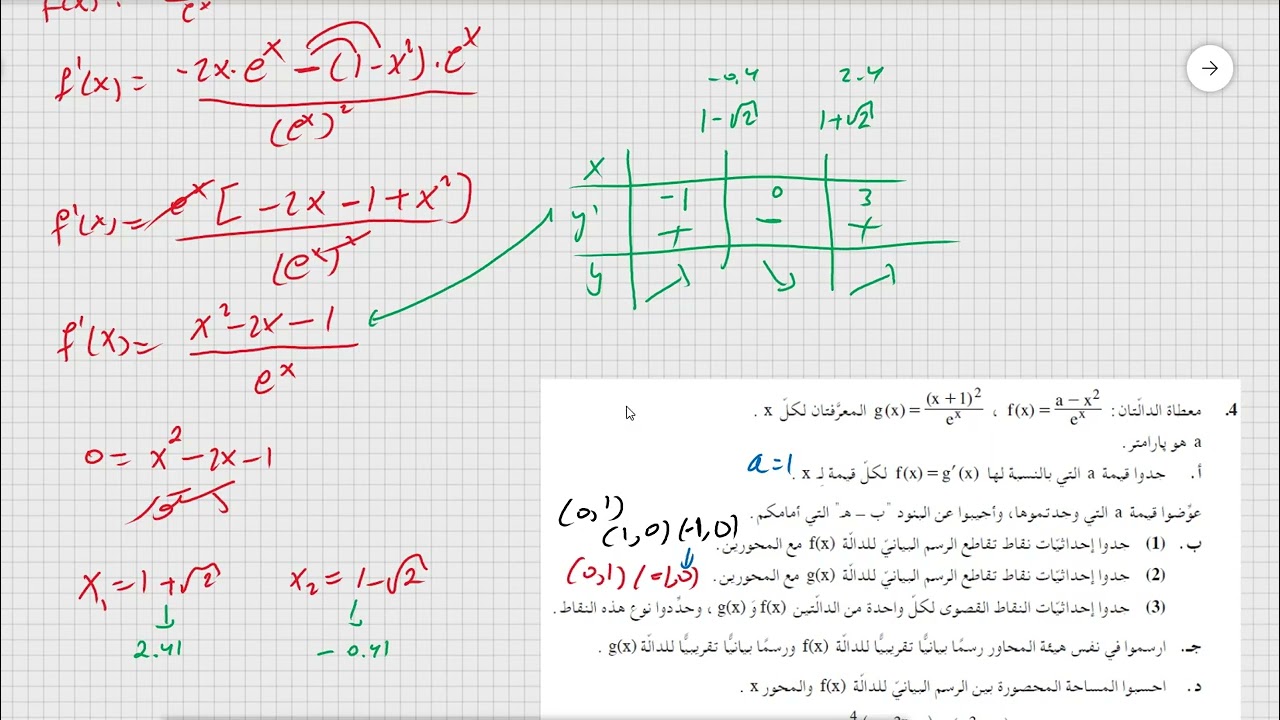 f'(x) = (-2x·e^x - (1 - x²)·e^x) / (e^x)²
f'(x) = e^x [-2x - 1 + x²) / (e^x)^2
f'(x) = (x² - 2x - 1) / e^x
0 = x² - 2x - 1
x₁ = 1 + √2 x₂ = 1 - √2
2.41 - 0.41
-0.4 2.4
1-√2 1+√2
x
y' -1 0 3
+ - +
y
→
4. معطاة الدالّتان: f(x) = (a - x²)/e^x ، g(x) = (x + 1)²/e^x المعرَّفتان لكلّ x .
a هو پارامتر.
أ. جدوا قيمة a التي بالنسبة لها f(x) = g′(x) لكلّ قيمة لِـ x . a=1
عوِّضوا قيمة a التي وجدتموها، وأجيبوا عن البنود "ب – هـ" التي أمامكم.
(0,1)
(1,0) (-1,0)
ب. (1) جدوا إحداثيّات نقاط تقاطع الرسم البيانيّ للدالّة f(x) مع المحورين.
(2) جدوا إحداثيّات نقاط تقاطع الرسم البيانيّ للدالّة g(x) مع المحورين. (0,1) (-1,0)
(3) جدوا إحداثيّات النقاط القصوى لكلّ واحدة من الدالّتين f(x) وَ g(x) ، وحدِّدوا نوع هذه النقاط.
جـ. ارسموا في نفس هيئة المحاور رسمًا بيانيًّا تقريبيًّا للدالّة f(x) ورسمًا بيانيًّا تقريبيًّا للدالّة g(x) .
د. احسبوا المساحة المحصورة بين الرسم البيانيّ للدالّة f(x) والمحور x .